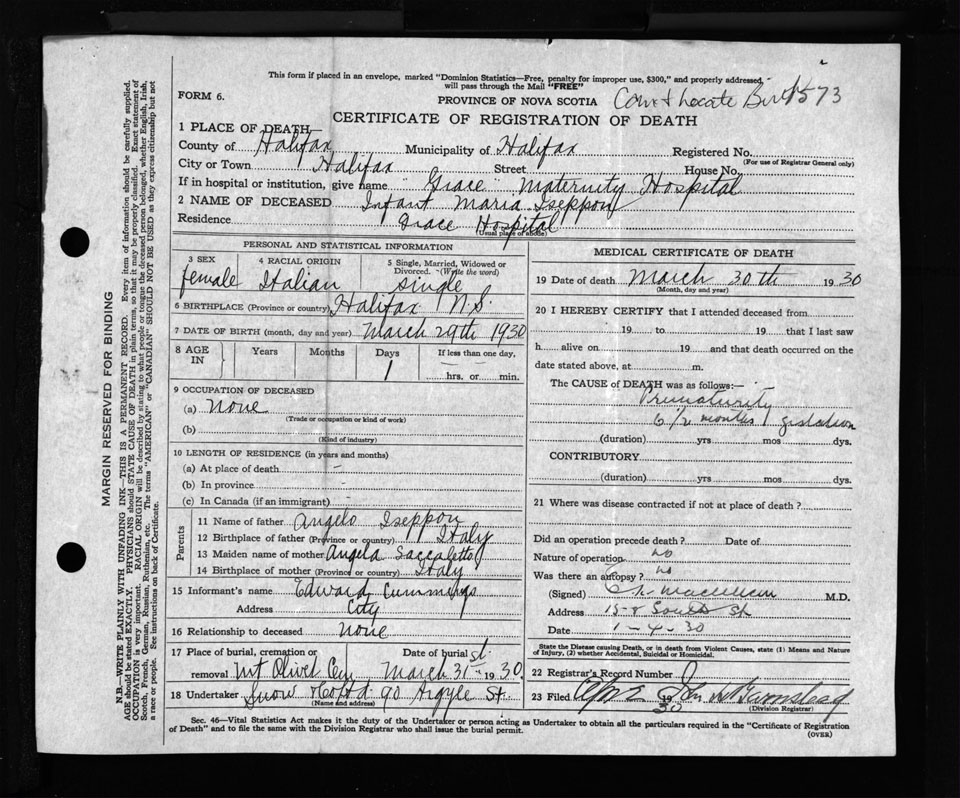 This form if placed in an envelope, marked "Dominion Statistics—Free, penalty for improper use, $300," and properly addressed,
will pass through the Mail "FREE"
FORM 6.
PROVINCE OF NOVA SCOTIA
Locate 573
CERTIFICATE OF REGISTRATION OF DEATH
1 PLACE OF DEATH
County of Halifax Municipality of Halifax Registered No.
(For use of Registrar General only)
City or Town Halifax Street House No.
If in hospital or institution, give name "Grace Maternity Hospital
2 NAME OF DECEASED Infant Maria Iseppon
Residence Grace Hospital
(Usual place of abode)
PERSONAL AND STATISTICAL INFORMATION
3 SEX 4 RACIAL ORIGIN 5 Single, Married, Widowed or Divorced. (Write the word)
female Italian single
6 BIRTHPLACE (Province or country) Halifax N.S.
7 DATE OF BIRTH (month, day and year) March 29th 1930
8 AGE IN Years Months Days If less than one day,
1 hrs. or min.
9 OCCUPATION OF DECEASED
(a) None
(Trade or occupation or kind of work)
(b)
(Kind of industry)
10 LENGTH OF RESIDENCE (in years and months)
(a) At place of death -
(b) In province -
(c) In Canada (if an immigrant) -
Parents
11 Name of father Angelo Iseppon
12 Birthplace of father (Province or country) Italy
13 Maiden name of mother Angela Saccaletto
14 Birthplace of mother (Province or country) Italy
15 Informant's name Edward Cummings
Address City
16 Relationship to deceased None
17 Place of burial, cremation or removal Mt Olivet Cem Date of burial March 31st 1930
18 Undertaker Snow & Co Ltd 90 Argyle St.
(Name and address)
MEDICAL CERTIFICATE OF DEATH
19 Date of death March 30th 1930
(Month, day and year)
20 I HEREBY CERTIFY that I attended deceased from
19 to 19 that I last saw
h alive on 19 and that death occurred on the
date stated above, at m.
The CAUSE of DEATH was as follows:—
Prematurity
6 1/2 months gestation
(duration) yrs mos dys.
CONTRIBUTORY
(duration) yrs mos dys.
21 Where was disease contracted if not at place of death?
Did an operation precede death? Date of
Nature of operation no
Was there an autopsy? no
(Signed) M.D.
Address South St
Date 1-4-30
State the Disease causing Death, or in death from Violent Causes, state (1) Means and Nature
of Injury, (2) whether Accidental, Suicidal or Homicidal.
22 Registrar's Record Number
23 Filed 1930
(Division Registrar)
Sec. 46—Vital Statistics Act makes it the duty of the Undertaker or person acting as Undertaker to obtain all the particulars required in the "Certificate of Registration
of Death" and to file the same with the Division Registrar who shall issue the burial permit.
(OVER)
MARGIN RESERVED FOR BINDING
N.B.—WRITE PLAINLY WITH UNFADING INK—THIS IS A PERMANENT RECORD. Every item of information should be carefully supplied.
AGE should be stated EXACTLY. PHYSICIANS should STATE CAUSE OF DEATH in plain terms, so that it may be properly classified. Exact statement of
OCCUPATION is very important. RACIAL ORIGIN will be described by stating to what people or tongue the deceased person belonged, whether English, Irish,
Scotch, French, German, Russian, Ruthenian, etc. The terms "AMERICAN" or "CANADIAN" SHOULD NOT BE USED as they express citizenship but not
a race or people. See instructions on back of Certificate.